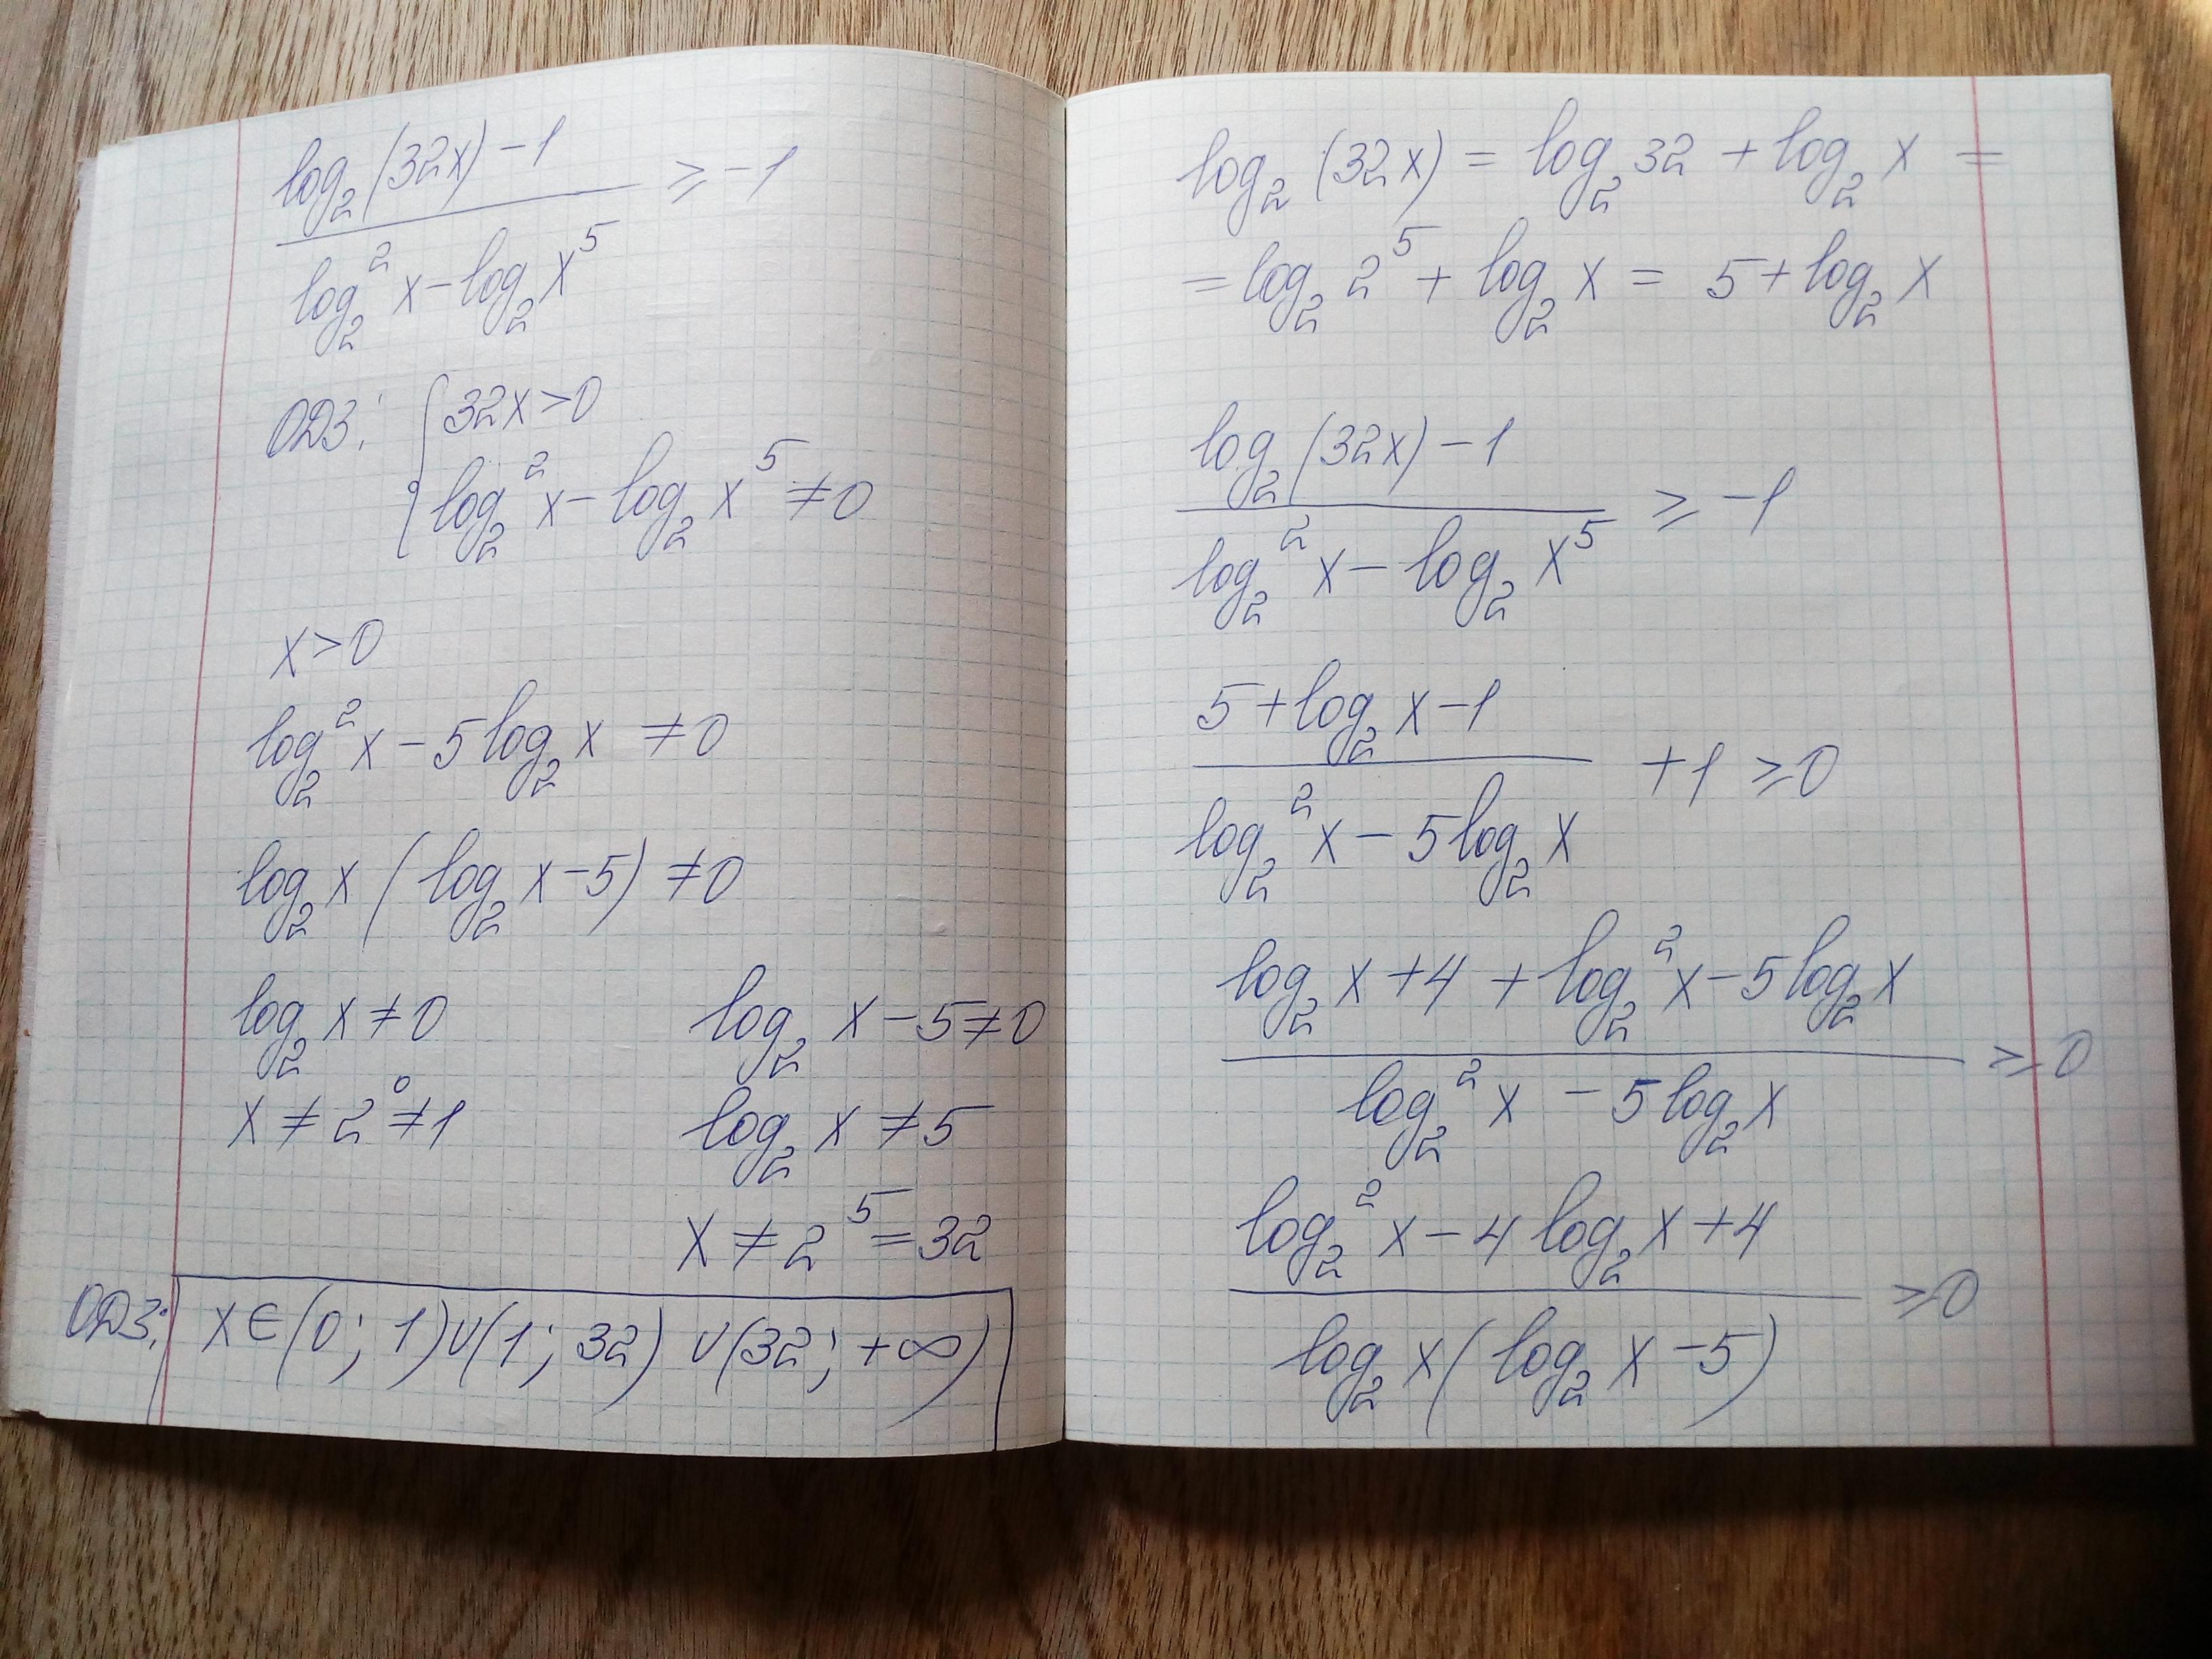 log₂(32x) − 1
/ log₂²x − log₂x⁵ ≥ −1
ОДЗ: { 32x > 0
log₂²x − log₂x⁵ ≠ 0
x > 0
log₂²x − 5log₂x ≠ 0
log₂x (log₂x − 5) ≠ 0
log₂x ≠ 0 log₂x − 5 ≠ 0
x ≠ 2⁰ ≠ 1 log₂x ≠ 5
x ≠ 2⁵ = 32
ОДЗ: x ∈ (0; 1) ∪ (1; 32) ∪ (32; +∞)
log₂(32x) = log₂32 + log₂x =
= log₂2⁵ + log₂x = 5 + log₂x
log₂(32x) − 1
/ log₂²x − log₂x⁵ ≥ −1
5 + log₂x − 1
/ log₂²x − 5log₂x + 1 ≥ 0
log₂x + 4 + log₂²x − 5log₂x
/ log₂²x − 5log₂x ≥ 0
log₂²x − 4log₂x + 4
/ log₂x (log₂x − 5) ≥ 0